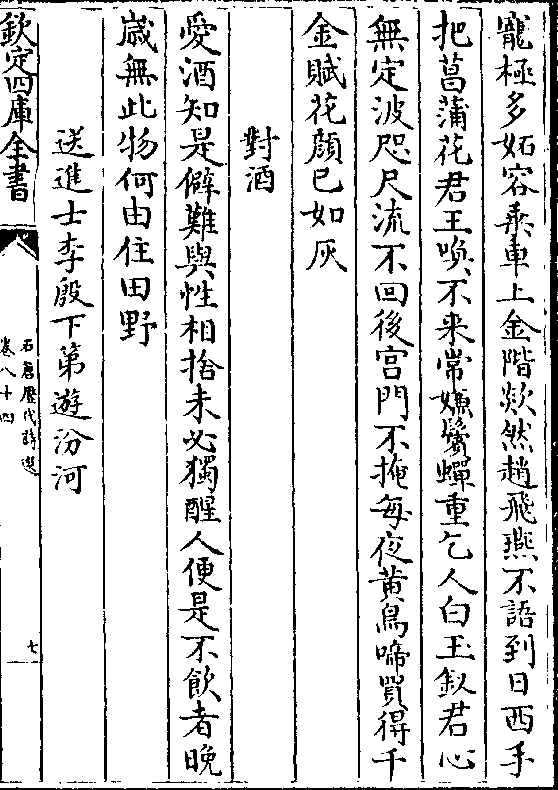 寵極多妬容乘車上金階歘然趙飛燕不語到日西手
把菖蒲花君王喚不来常嫌鬢蟬重乞人白玉釵君心
無定波咫尺流不回後宮門不掩每夜黄鳥啼買得千
金賦花顔已如灰
對酒
愛酒知是僻難與性相捨未必獨醒人便是不飲者晚
歲無此物何由住田野
送進士李殷下第遊汾河
欽定四庫全書
石倉歷代詩選
卷八十四
七